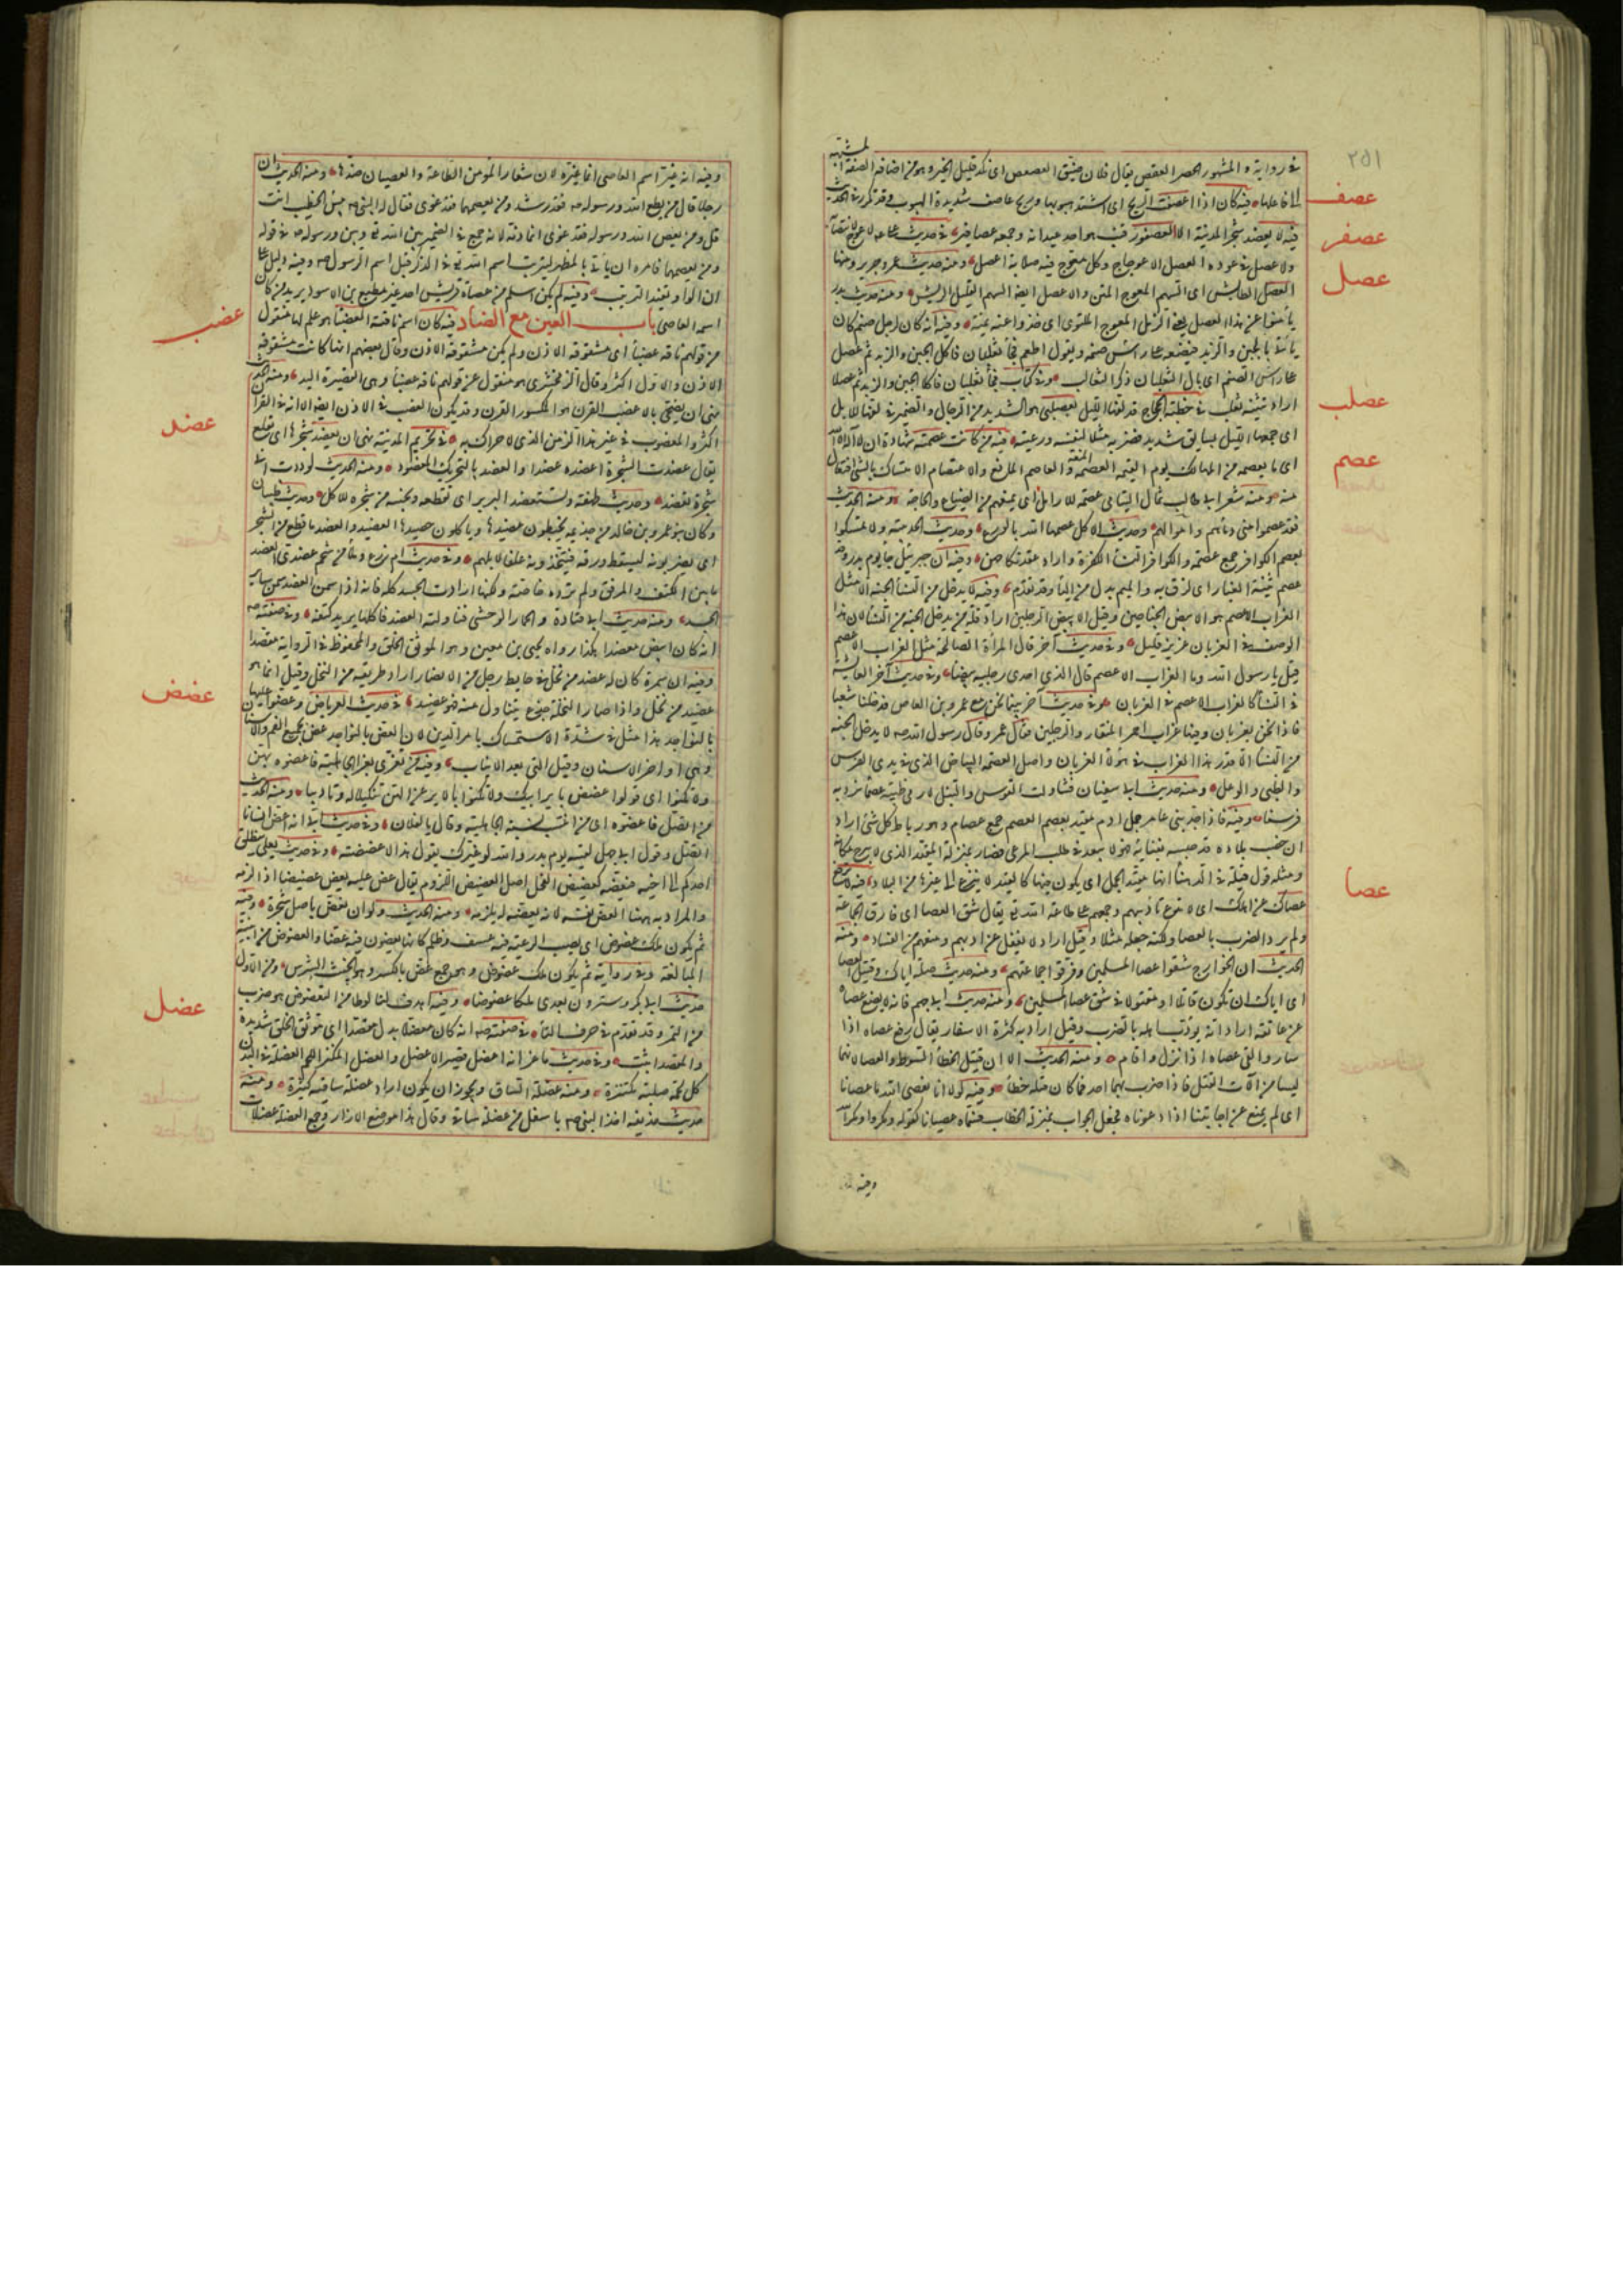 ٢٥١
في رواية والمشهور الحصر العقص يقال فلان ضيق العصعص اي نكد قليل الخير وهو من اضافة الصفة المشبهة
عصف
الى فاعلها وفيه كان اذا اعصفت الريح اي اشتد هبوبها وريح عاصف شديدة الهبوب وقد تكرر في الحديث
عصفر
فيه لا يعضد شجر المدينة الا لعصفور قتب هو احد عيدانه وجمعه عصافير في حديث علي لا عوج لانتصابه
عصل
ولا عصل في عوده العصل الاعوجاج وكل معوج فيه صلابة اعصل ومنه حديث عمر وجرير ومنها
العصل الطائش اي السهم المعوج المتن والاعصل ايضا السهم القليل الريش ومنه حديث بدر
يامنوا عن هذا العصل يعني الرمل المعوج الملتوي اي خذوا عنه يمنة وفيه انه كان لرجل صنم كان
يأتي بالجبن والزبد فيضعه على رأس صنمه ويقول اطعم فجأ ثعلبان فاكل الجبن والزبد ثم عصل
على رأس الصنم اي بال الثعلبان ذكر الثعالب وفي كتاب فجأ ثعلبان فاكلا الجبن والزبد ثم عصلا
عصلب
اراد تثنية ثعلب في خطبة الحجاج قد لفها الليل بعصلبي هو الشديد من الرجال والضمير في لفها للابل
اي جمعها الليل بسائق شديد فضربه مثلا لنفسه ورعيته
عصم
فيه من كانت عصمته شهادة ان لا اله الا الله
اي ما يعصمه من المهالك يوم القيمة العصمة المنعة والعاصم المانع والاعتصام الامتساك بالشئ افتعال
منه ومنه شعر ابي طالب ثمال اليتامى عصمة للارامل اي يمنعهم من الضياع والحاجة ومنه الحديث
فقد عصموا مني دماءهم واموالهم وحديث الافك عصمها الله بالورع وحديث الحديبية ولا تمسكوا
بعصم الكوافر جمع عصمة والكوافر النساء الكفرة واراد عقد نكاحهن وفيه ان جبرئيل جا يوم بدر وقد
عصم ثنيته الغبار اي لزق به والميم بدل من الباء وقد تقدم وفيه لا يدخل من النساء الجنة الا مثل
الغراب الاعصم هو الابيض الجناحين وقيل الابيض الرجلين اراد قلة من يدخل الجنة من النساء لان هذا
الوصف في الغربان عزيز قليل وفي حديث آخر قال المرأة الصالحة مثل الغراب الاعصم
قيل يا رسول الله وما الغراب الاعصم قال الذي احدى رجليه بيضاء وفي حديث آخر عائشة
في النساء كالغراب الاعصم في الغربان وفي حديث آخر بينما نحن مع عمرو بن العاص فدخلنا شعبا
فاذا نحن بغربان وفيها غراب احمر المنقار والرجلين فقال عمرو قال رسول الله صه لا يدخل الجنة
من النساء الا قدر هذا الغراب في هؤلاء الغربان واصل العصمة البياض الذي في يدي الفرس
والظبي والوعل ومنه حديث ابي سفيان فتناولت القوس والنبل لارمي ظبية عصماء نرد به
قرمنا وفيه فاذا جد بني عامر جمل ادم مقيد بعصم العصم جمع عصام وهو رباط كل شئ اراد
ان خصب بلاده قد حبسه بفنائه فهو لا يبعد في طلب المرعى فصار بمنزلة المقيد الذي لا يبرح مكانه
ومثله قول قيلة في الدهنا انها مقيد الجمل اي يكون فيها كالمقيد لا ينزع الى غيرها من البلاد
عصا
فيه لا ترفع
عصاك عن اهلك اي لا تدع تأديبهم وجمعهم على طاعة الله تع يقال شق العصا اي فارق الجماعة
ولم يرد الضرب بالعصا ولكنه جعله مثلا وقيل اراد لا تغفل عن ادبهم ومنعهم من الفساد ومنه
الحديث ان الخوارج شقوا عصا المسلمين وفرقوا جماعتهم ومنه حديث صلة اياك وقتيل العصا
اي اياك ان تكون قاتلا او مقتولا في شق عصا المسلمين ومنه حديث ابي جهم فانه لا يضع عصاه
عن عاتقه اراد انه يؤدب اهله بالضرب وقيل اراد به كثرة الاسفار يقال رفع عصاه اذا
سار والقى عصاه اذا نزل واقام ومنه الحديث الا ان قتيل الخطأ السوط والعصا لانهما
ليسا من آلات القتل فاذا ضرب بهما احد فمات كان قتله خطأ وفيه لولا انا نعصي الله ما عصانا
اي لم يمتنع عن اجابتنا اذا دعوناه فجعل الجواب بمنزلة الخطاب فسماه عصيانا كقوله ومكروا ومكر الله
وفيه
وفيه انه غير اسم العاصي انما غيره لان شعار المؤمن الطاعة والعصيان ضدها ومنه الحديث ان
رجلا قال من يطع الله ورسوله فقد رشد ومن يعصهما فقد غوى فقال له النبي صه بئس الخطيب انت
قل ومن يعص الله ورسوله فقد غوى انما ذمه لانه جمع في الضمير بين الله تع وبين رسوله صه في قوله
ومن يعصهما فامره ان يأتي بالمظهر ليترتب اسم الله تع في الذكر قبل اسم الرسول صه وفيه دليل على
ان الواو تفيد الترتيب وفيه لم يكن اسلم من عصاة قريش احد غير مطيع بن الاسود يريد من كان
اسمه العاصي باب العين مع الضاد
عضب
فيه كان اسم ناقته العضباء هو علم لها منقول
من قولهم ناقة عضباء اي مشقوقة الاذن ولم يكن مشقوقة الاذن وقال بعضهم انها كانت مشقوقة
الاذن والاول اكثر وقال الزمخشري هو منقول عن قولهم ناقة عضباء وهي القصيرة اليد ومنه الحديث
نهى ان يضحى بالاعضب القرن هو المكسور القرن وقد يكون العضب في الاذن ايضا الا انه في القرن
اكثر والمعضوب في غير هذا الزمن الذي لا حراك به
عضد
في تحريم المدينة نهى ان يعضد شجرها اي يقطع
يقال عضدت الشجرة اعضده عضدا والعضد بالتحريك المعضود ومنه الحديث لوددت اني
شجرة تعضد وحديث طهفة ونستعضد البرير اي نقطعه ونجنيه من شجره للاكل وحديث ظبيان
وكان بنو عمرو بن خالد من جذيمة يخبطون عضيدها ويأكلون حصيدها العضيد والعضد ما قطع من الشجر
اي يضربونه ليسقط ورقه فيتخذونه علفا لابلهم وفي حديث ام زرع وملأ من شحم عضدي العضد
ما بين الكتف والمرفق ولم ترده خاصة ولكنها ارادت الجسد كله فانه اذا سمن العضد سمن ساير
الجسد ومنه حديث ابي قتادة والحمار الوحشي فناولته العضد فاكلها يريد كتفه وفي صفته صه
انه كان ابيض معضدا هكذا رواه يحيى بن معين وهو الموثق الخلق والمحفوظ في الرواية مقصدا
وفيه ان سمرة كان له عضد من نخل في حايط رجل من الانصار اراد طريقة من النخل وقيل انما هو
عضيد من نخل واذا صار للنخلة جذع يتناول منه فهو عضيد
عضض
في حديث العرباض وعضوا عليها
بالنواجد هذا مثل في شدة الاستمساك بامر الدين لان العض بالنواجد عض بجميع الفم والاسنان
وهي اواخر الاسنان وقيل التي بعد الانياب وفيه من تعزى بعزاء الجاهلية فاعضوه بهن
ولا تكنوا اي قولوا اعضض باير ابيك ولا تكنوا بالاير عن الهن تنكيلا له وتأديبا ومنه الحديث
من اتصل فاعضوه اي من انتسب نسبة الجاهلية وقال يا لفلان وفي حديث ابي انه اعض انسانا
اتصل وقول ابي جهل لعتبة يوم بدر والله لو غيرك يقول هذا لاعضضته وفي حديث يعلى ينطلق
احدكم الى اخيه فيعضه كعضيض الفحل اصل العضيض اللزوم يقال عض عليه يعض عضيضا اذا لزمه
والمراد به ههنا العض نفسه لانه بعضه له يلزمه ومنه الحديث ولو ان تعض باصل شجرة وفيه
ثم يكون ملك عضوض اي يصيب الرعية فيه عسف وظلم كانما يعضون فيه عضا والعضوض من ابنية
المبالغة وفي رواية ثم يكون ملك عضوض وهو جمع عض بالكسر وهو الخبيث الشرس ومن الاول
حديث ابي بكر وسترون بعدي ملكا عضوضا وفيه اهدت لنا نوطا من التعضوض هو ضرب
من التمر وقد تقدم في حرف التاء
عضل
في صفته صه انه كان معضلا بدل مقصدا اي موثق الخلق شديده
والمقصد اثبت وفي حديث ماعز انه اعضل قصير الاعضل والعضل المكتنز اللحم العضلة في البدن
كل لحمة صلبة مكتنزة ومنه عضلة الساق ويجوز ان يكون اراد عضلة ساقيه كبيرة ومنه
حديث حذيفة اخذ النبي صه باسفل من عضلة ساقي وقال هذا موضع الازار وجمع العضلة عضلات